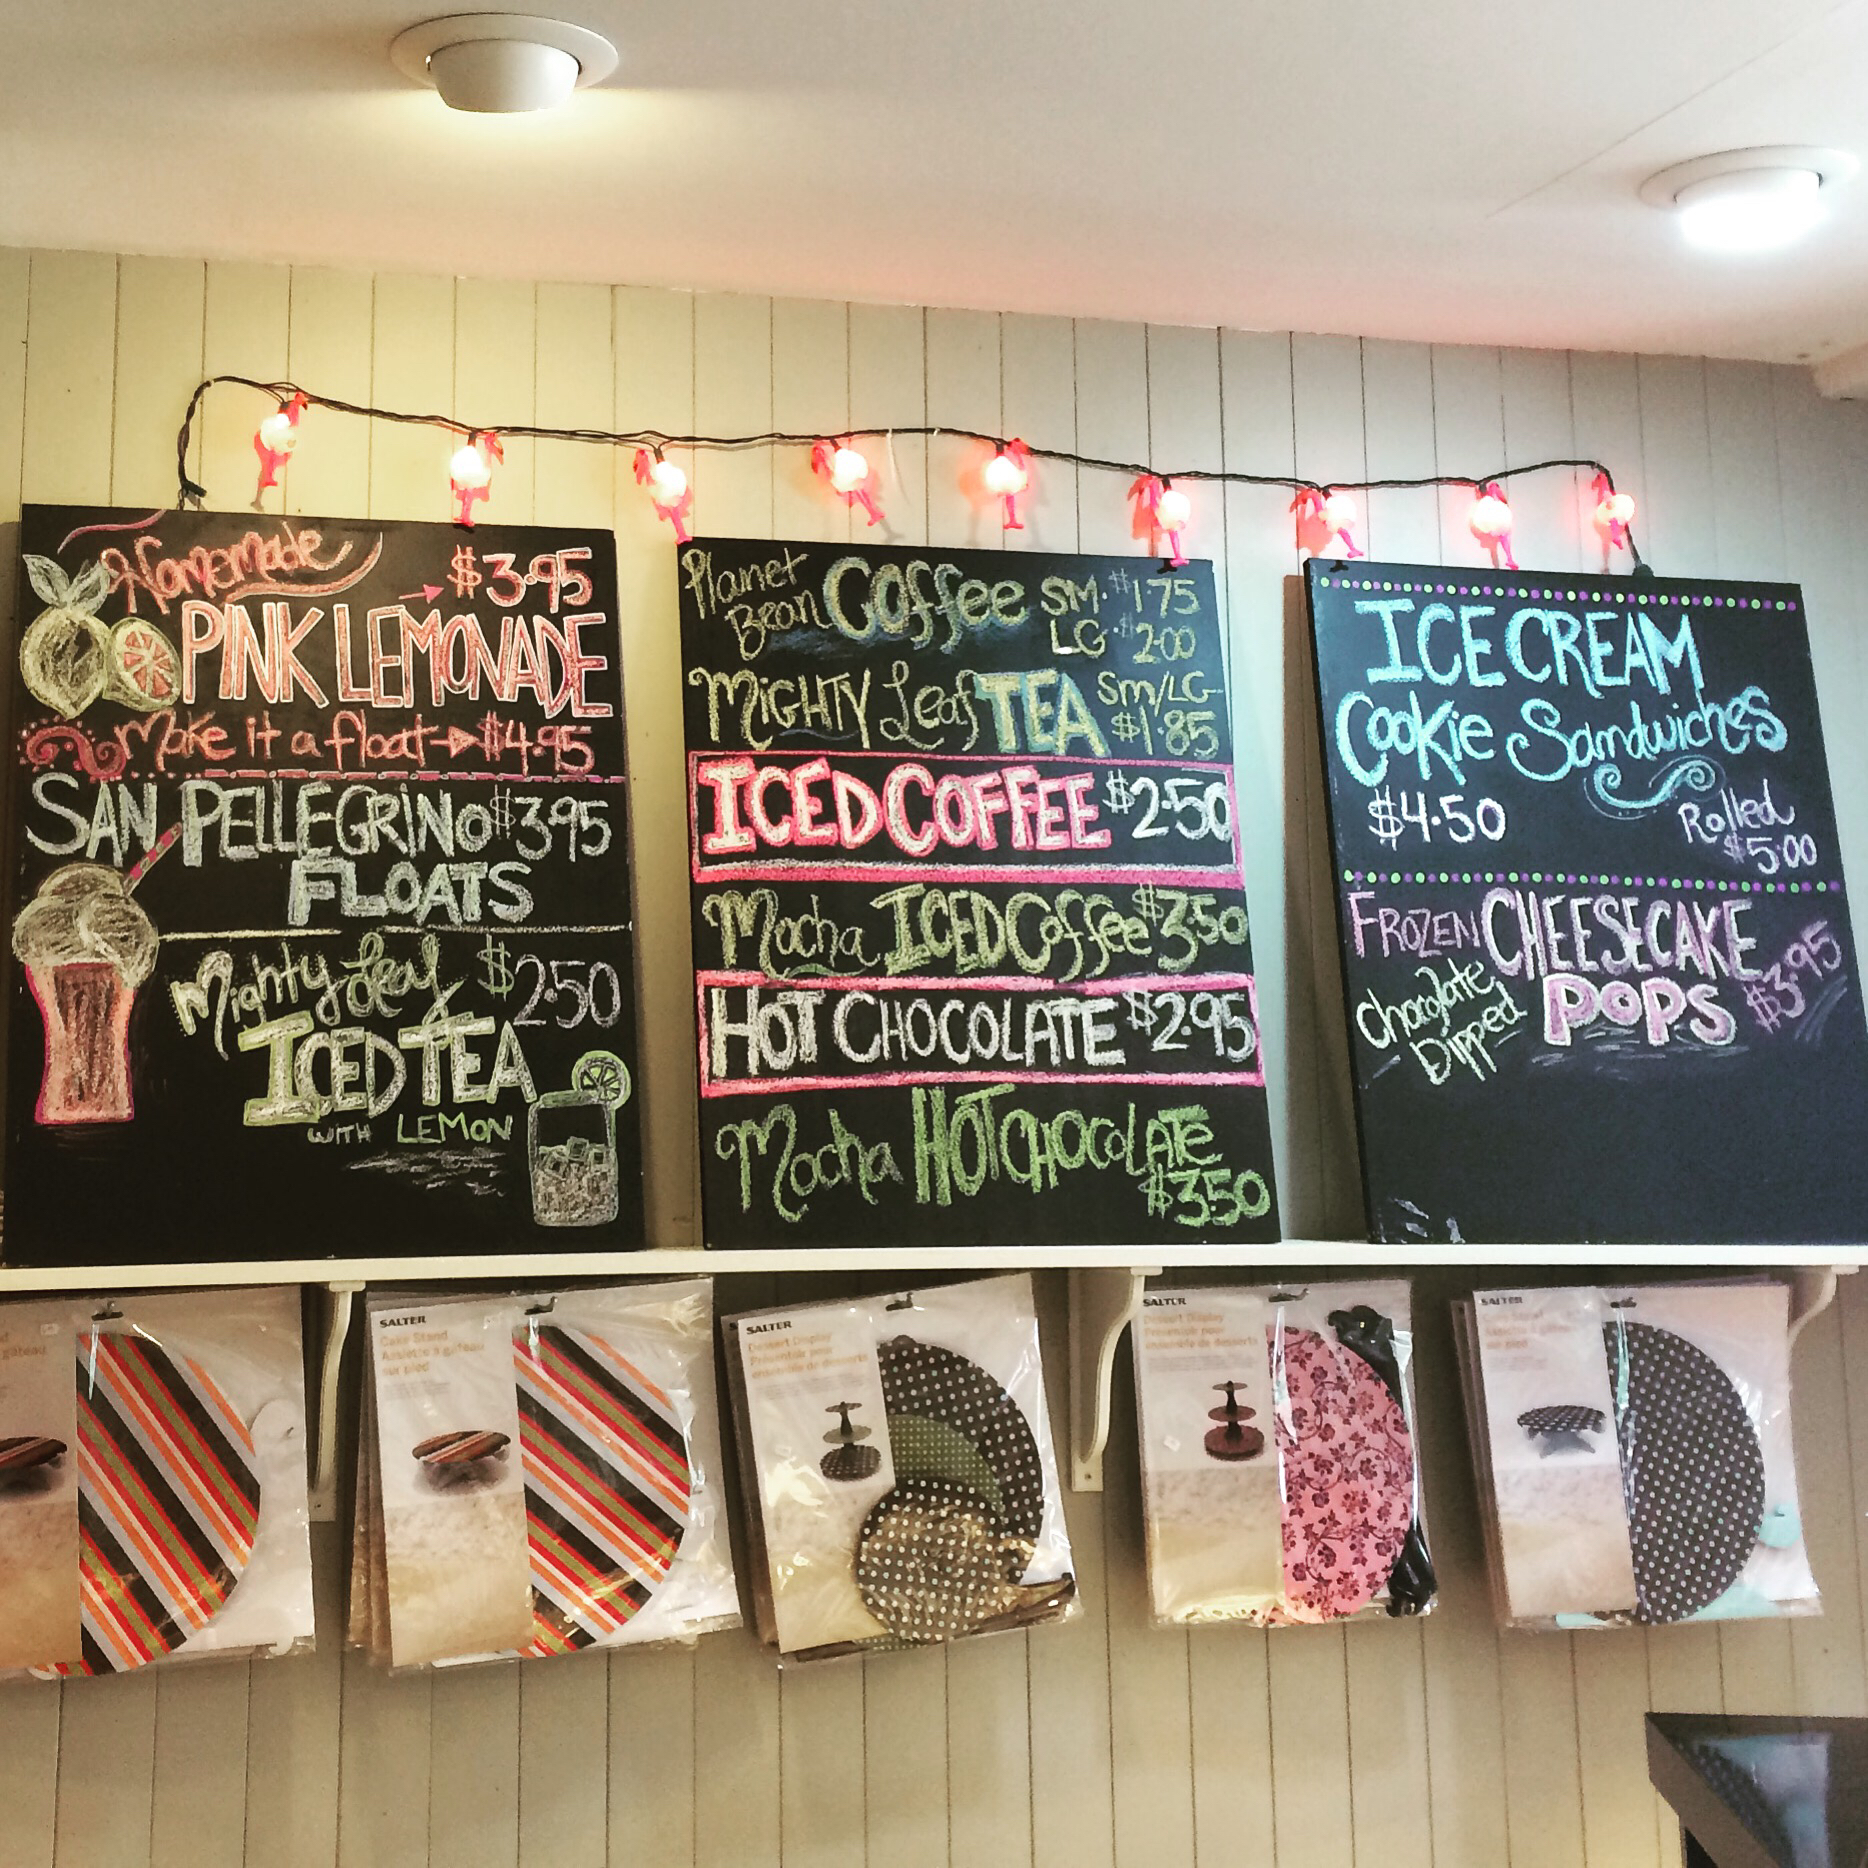 Homemade $3.95
PINK LEMONADE
Make it a float $4.95
SAN PELLEGRINO $3.95
FLOATS
Mighty Leaf $2.50
ICED TEA
WITH LEMON
Planet Bean Coffee SM. $1.75
LG. $2.00
MIGHTY Leaf TEA Sm/LG
$1.85
ICED COFFEE $2.50
Mocha ICED Coffee $3.50
HOT CHOCOLATE $2.95
Mocha HOT CHOCOLATE
$3.50
ICE CREAM
Cookie Sandwiches
$4.50 Rolled
$5.00
FROZEN CHEESECAKE
POPS $3.95
Chocolate
Dipped
gâteau
SALTER
Cake Stand
Assiette à gâteau
sur pied
SALTER
Dessert Display
Présentoir pour
ensemble de desserts
SALTER
Dessert Display
Présentoir pour
ensemble de desserts
SALTER
sur pied